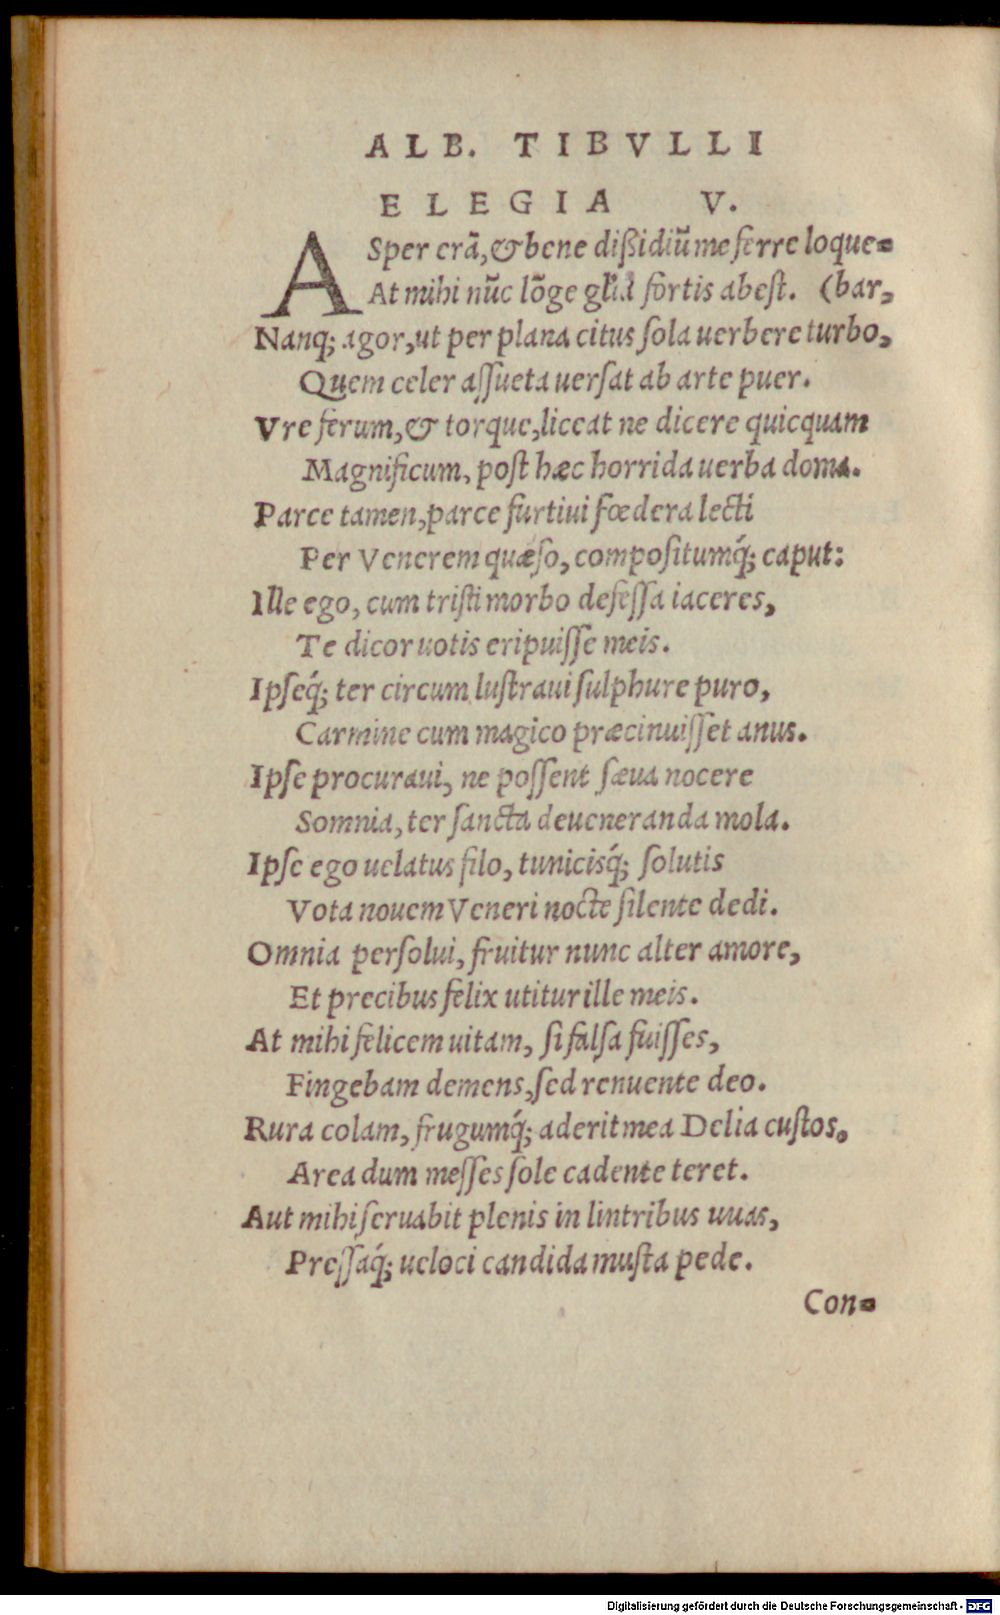 ALB. TIBVLLI
ELEGIA V.
ASper erã, & bene dißidiũ me ferre loque=
At mihi nũc lõge gl'ia fortis abest. (bar,
Nanq; agor, ut per plana citus sola uerbere turbo,
Quem celer assueta uersat ab arte puer.
Vre ferum, & torque, liceat ne dicere quicquam
Magnificum, post hæc horrida uerba doma.
Parce tamen, parce furtiui fœdera lecti
Per Venerem quæso, compositumq́; caput:
Ille ego, cum tristi morbo defessa iaceres,
Te dicor uotis eripuisse meis.
Ipseq́; ter circum lustraui sulphure puro,
Carmine cum magico præcinuisset anus.
Ipse procuraui, ne possent sæua nocere
Somnia, ter sancta deueneranda mola.
Ipse ego uelatus filo, tunicisq́; solutis
Vota nouem Veneri nocte silente dedi.
Omnia persolui, fruitur nunc alter amore,
Et precibus felix utitur ille meis.
At mihi felicem uitam, si falsa fuisses,
Fingebam demens, sed renuente deo.
Rura colam, frugumq́; aderit mea Delia custos.
Area dum messes sole cadente teret.
Aut mihi seruabit plenis in lintribus uuas,
Pressaq́; ueloci candida musta pede.
Con=
Digitalisierung gefördert durch die Deutsche Forschungsgemeinschaft - DFG